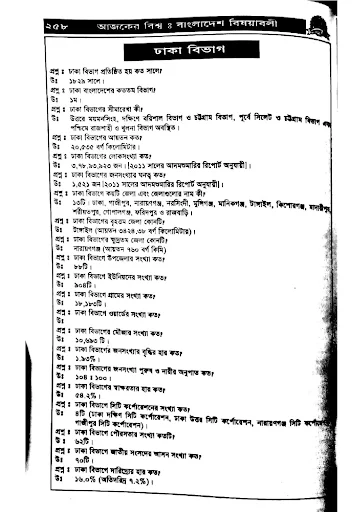 ২৫৮ আজকের বিশ্ব ঃ বাংলাদেশ বিষয়াবলী
ঢাকা বিভাগ
প্রশ্ন ঃ ঢাকা বিভাগ প্রতিষ্ঠিত হয় কত সালে?
উঃ ১৮২৯ সালে।
প্রশ্ন ঃ ঢাকা বাংলাদেশের কততম বিভাগ?
উঃ ১ম।
প্রশ্ন ঃ ঢাকা বিভাগের সীমারেখা কী?
উঃ উত্তরে ময়মনসিংহ, দক্ষিণে বরিশাল বিভাগ ও চট্টগ্রাম বিভাগ, পূর্বে সিলেট ও চট্টগ্রাম বিভাগ এবং
পশ্চিমে রাজশাহী ও খুলনা বিভাগ অবস্থিত।
প্রশ্ন ঃ ঢাকা বিভাগের আয়তন কত?
উঃ ২০,৫৩৫ বর্গ কিলোমিটার।
প্রশ্ন ঃ ঢাকা বিভাগের লোকসংখ্যা কত?
উঃ ৩,৭৮,৯৩,৯২৩ জন [২০১১ সালের আদমশুমারির রিপোর্ট অনুযায়ী]।
প্রশ্ন ঃ ঢাকা বিভাগের জনসংখ্যার ঘনত্ব কত?
উঃ ১,৫২১ জন [২০১১ সালের আদমশুমারির রিপোর্ট অনুযায়ী]।
প্রশ্ন ঃ ঢাকা বিভাগে কয়টি জেলা এবং জেলাগুলোর নাম কী?
উঃ ১৩টি। ঢাকা, গাজীপুর, নারায়ণগঞ্জ, নরসিংদী, মুন্সিগঞ্জ, মানিকগঞ্জ, টাঙ্গাইল, কিশোরগঞ্জ, মাদারীপুর,
শরীয়তপুর, গোপালগঞ্জ, ফরিদপুর ও রাজবাড়ি।
প্রশ্ন ঃ ঢাকা বিভাগের বৃহত্তম জেলা কোনটি?
উঃ টাঙ্গাইল (আয়তন ৩৪২৪.৩৮ বর্গ কিলোমিটার)।
প্রশ্ন ঃ ঢাকা বিভাগের ক্ষুদ্রতম জেলা কোনটি?
উঃ নারায়ণগঞ্জ (আয়তন ৭৬০ বর্গ কিমি)
প্রশ্ন ঃ ঢাকা বিভাগে উপজেলার সংখ্যা কত?
উঃ ৮৮টি।
প্রশ্ন ঃ ঢাকা বিভাগে ইউনিয়নের সংখ্যা কত?
উঃ ৯০৪টি।
প্রশ্ন ঃ ঢাকা বিভাগে গ্রামের সংখ্যা কত?
উঃ ১৮,১৮৩টি।
প্রশ্ন ঃ ঢাকা বিভাগে ওয়ার্ডের সংখ্যা কত?
উঃ
প্রশ্ন ঃ ঢাকা বিভাগের মৌজার সংখ্যা কত?
উঃ ১০,৬৯৩ টি।
প্রশ্ন ঃ ঢাকা বিভাগের জনসংখ্যার বৃদ্ধির হার কত?
উঃ ১.৯৩%।
প্রশ্ন ঃ ঢাকা বিভাগের জনসংখ্যা পুরুষ ও নারীর অনুপাত কত?
উঃ ১০৪ ঃ ১০০।
প্রশ্ন ঃ ঢাকা বিভাগের স্বাক্ষরতার হার কত?
উঃ ৫৪.২%।
প্রশ্ন ঃ ঢাকা বিভাগে সিটি কর্পোরেশনের সংখ্যা কত?
উঃ ৪টি (ঢাকা দক্ষিণ সিটি কর্পোরেশন, ঢাকা উত্তর সিটি কর্পোরেশন, নারায়ণগঞ্জ সিটি কর্পোরেশন,
গাজীপুর সিটি কর্পোরেশন)।
প্রশ্ন ঃ ঢাকা বিভাগে পৌরসভার সংখ্যা কতটি?
উঃ ৬২টি।
প্রশ্ন ঃ ঢাকা বিভাগে জাতীয় সংসদের আসন সংখ্যা কত?
উঃ ৭০টি।
প্রশ্ন ঃ ঢাকা বিভাগে দারিদ্র্যের হার কত?
উঃ ১৬.০% (অতিদরিদ্র ৭.২%)।